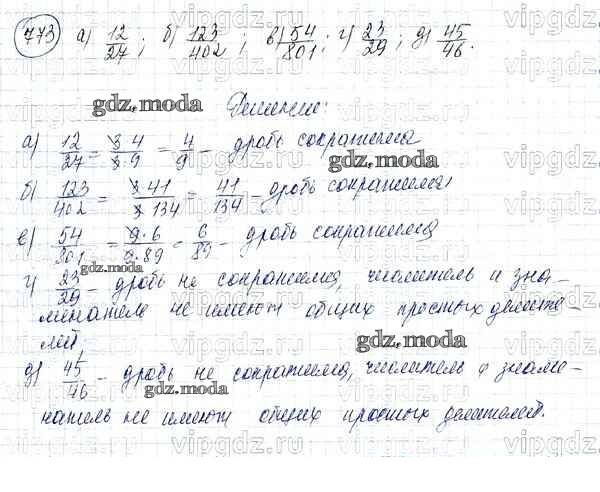 773 а) 12/27; б) 123/402; в) 54/801; г) 23/29; д) 45/46.
Решение:
а) 12/27 = 3·4/3·9 = 4/9 - дробь сократима
б) 123/402 = 3·41/3·134 = 41/134 - дробь сократима
в) 54/801 = 9·6/9·89 = 6/89 - дробь сократима
г) 23/29 - дробь не сократима, числитель и зна-
менатель не имеют общих простых делите-
лей.
д) 45/46 - дробь не сократима, числитель и знаме-
натель не имеют общих простых делителей.
gdz.moda
gdz.moda
gdz.moda
gdz.moda
gdz.moda
vipgdz.ru